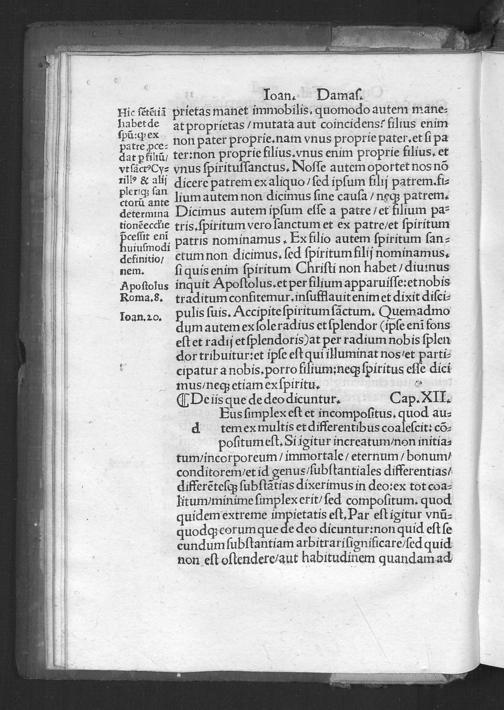 Ioan. Damas.
Hic sẽtẽtiã
habet de
spũ: ꝙ ex
patre ꝓce-
dat p filiũ/
vt sãctꝰ Cy-
rillꝰ & alij
pleriꝗ; san
ctorũ ante
determina
tionẽ ecclie
p̃cessit eni
huiusmodi
definitio/
nem.
Apostolus
Roma.8.
Ioan.20.
prietas manet immobilis. quomodo autem mane-
at proprietas/mutata aut coincidens? filius enim
non pater proprie. nam vnus proprie pater. et si pa
ter: non proprie filius. vnus enim proprie filius. et
vnus spiritussanctus. Nosse autem oportet nos nõ
dicere patrem ex aliquo/sed ipsum filij patrem. fi-
lium autem non dicimus sine causa/neꝗ; patrem.
Dicimus autem ipsum esse a patre/et filium pa-
tris. spiritum vero sanctum et ex patre/et spiritum
patris nominamus. Ex filio autem spiritum san-
ctum non dicimus. sed spiritum filij nominamus.
si quis enim spiritum Christi non habet/diuinus
inquit Apostolus. et per filium apparuisse: et nobis
traditum confitemur. insufflauit enim et dixit disci-
pulis suis. Accipite spiritum sãctum. Quemadmo
dum autem ex sole radius et splendor (ipse eni fons
est et radij et splendoris) at per radium nobis splen
dor tribuitur: et ipse est qui illuminat nos/et parti-
cipatur a nobis. porro filium; neꝗ; spiritus esse dici
mus/neꝗ; etiam ex spiritu.
¶ De iis que de deo dicuntur. Cap.XII.
d Eus simplex est et incompositus. quod au-
tem ex multis et differentibus coalescit: cõ-
positum est. Si igitur increatum/non initia-
tum/incorporeum/immortale/eternum/bonum/
conditorem/et id genus/substantiales differentias/
differẽtesꝗ; substãtias dixerimus in deo: ex tot coa-
litum/minime simplex erit/sed compositum. quod
quidem extreme impietatis est. Par est igitur vnũ-
quodꝗ; eorum que de deo dicuntur: non quid est se
cundum substantiam arbitrari significare/sed quid
non est ostendere/aut habitudinem quandam ad